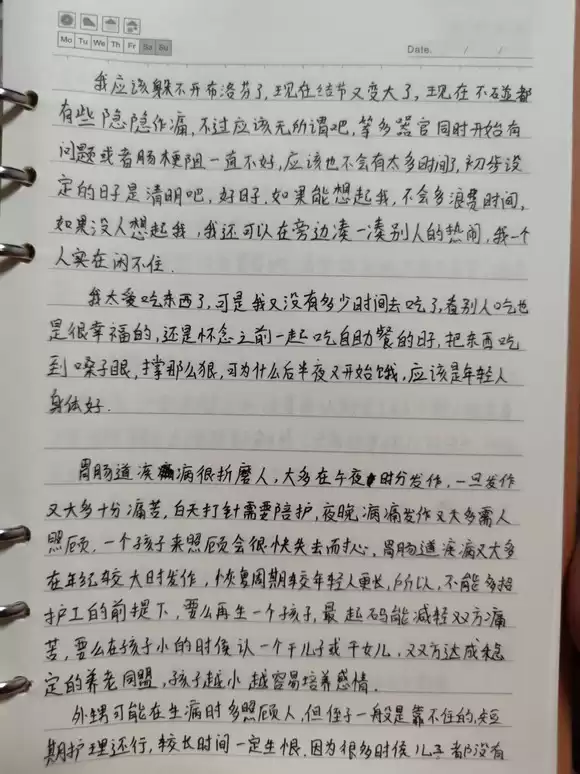 Mo Tu We Th Fr Sa Su
Date. / /
我应该躲不开布洛芬了,现在结节又变大了,现在不碰都
有些隐隐作痛,不过应该无所谓吧,等多器官同时开始有
问题或者肠梗阻一直不好,应该也不会有太多时间了,初步设
定的日子是清明吧,好日子,如果能想起我,不会多浪费时间,
如果没人想起我,我还可以在旁边凑一凑别人的热闹,我一个
人实在闲不住.
我太爱吃东西了,可是我又没有多少时间去吃了,看别人吃也
是很幸福的,还是怀念之前一起吃自助餐的日子,把东西吃
到嗓子眼,撑那么狠,可为什么后半夜又开始饿,应该是年轻人
身体好.
胃肠道疾病很折磨人,大多在午夜时分发作,一旦发作
又大多十分痛苦,白天打针需要陪护,夜晚病痛发作又大多需人
照顾,一个孩子来照顾会很快失去耐心,胃肠道疾病又大多
在年纪较大时发作,恢复周期较年轻人更长,所以,不能多招
护工的前提下,要么再生一个孩子,最起码能减轻双方痛
苦,要么在孩子小的时候认一个干儿子或干女儿,又双方达成稳
定的养老同盟,孩子越小越容易培养感情.
外甥可能在生病时多照顾人,但侄子一般是靠不住的,短
期护理还行,较长时间一定生恨,因为很多时候儿子都没有